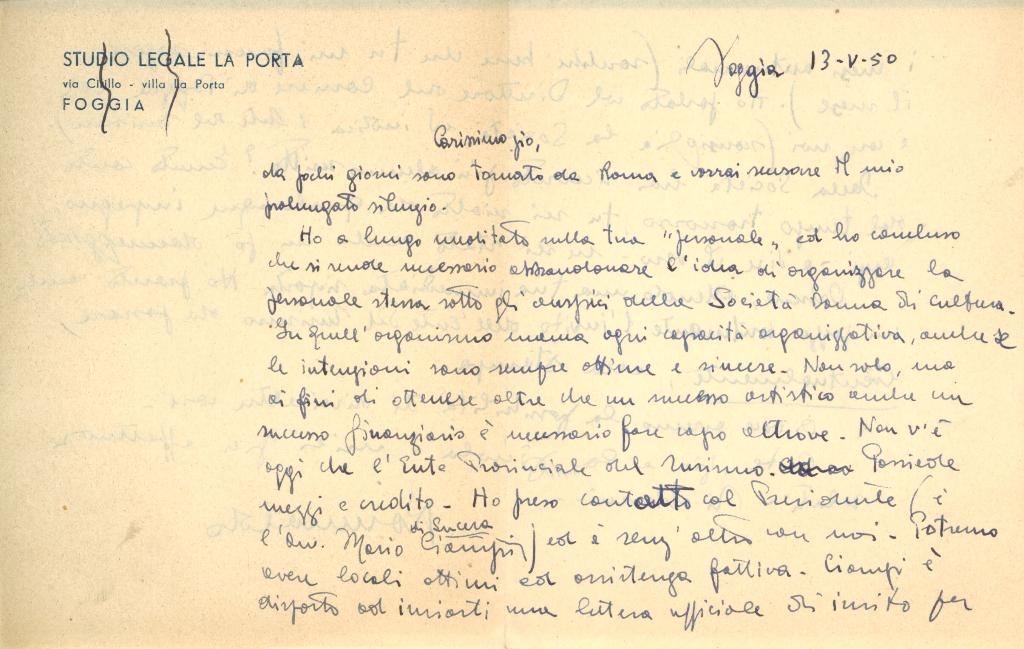 STUDIO LEGALE LA PORTA
via Cirillo - villa La Porta
FOGGIA
Foggia 13-V-50
Carissimo zio,
da pochi giorni sono tornato da Roma e vorrai scusare il mio
prolungato silenzio.
Ho a lungo meditato sulla tua "personale" ed ho concluso
che si rende necessario abbandonare l'idea di organizzare la
personale stessa sotto gli auspici della Società Dauna di Cultura.
In quell'organismo manca ogni capacità organizzativa, anche se
le intenzioni sono sempre ottime e sincere. Non solo, ma
ai fini di ottenere oltre che un successo artistico anche un
successo finanziario è necessario fare capo altrove. Non v'è
oggi che l'Ente Provinciale del Turismo. Possiede
mezzi e credito. Ho preso contatto col Presidente (è
l'avv. Mario Ciampi di Lucera) ed è senz'altro con noi. Potremo
avere locali ottimi ed assistenza fattiva. Ciampi è
disposto ad inviarti una lettera ufficiale di invito per